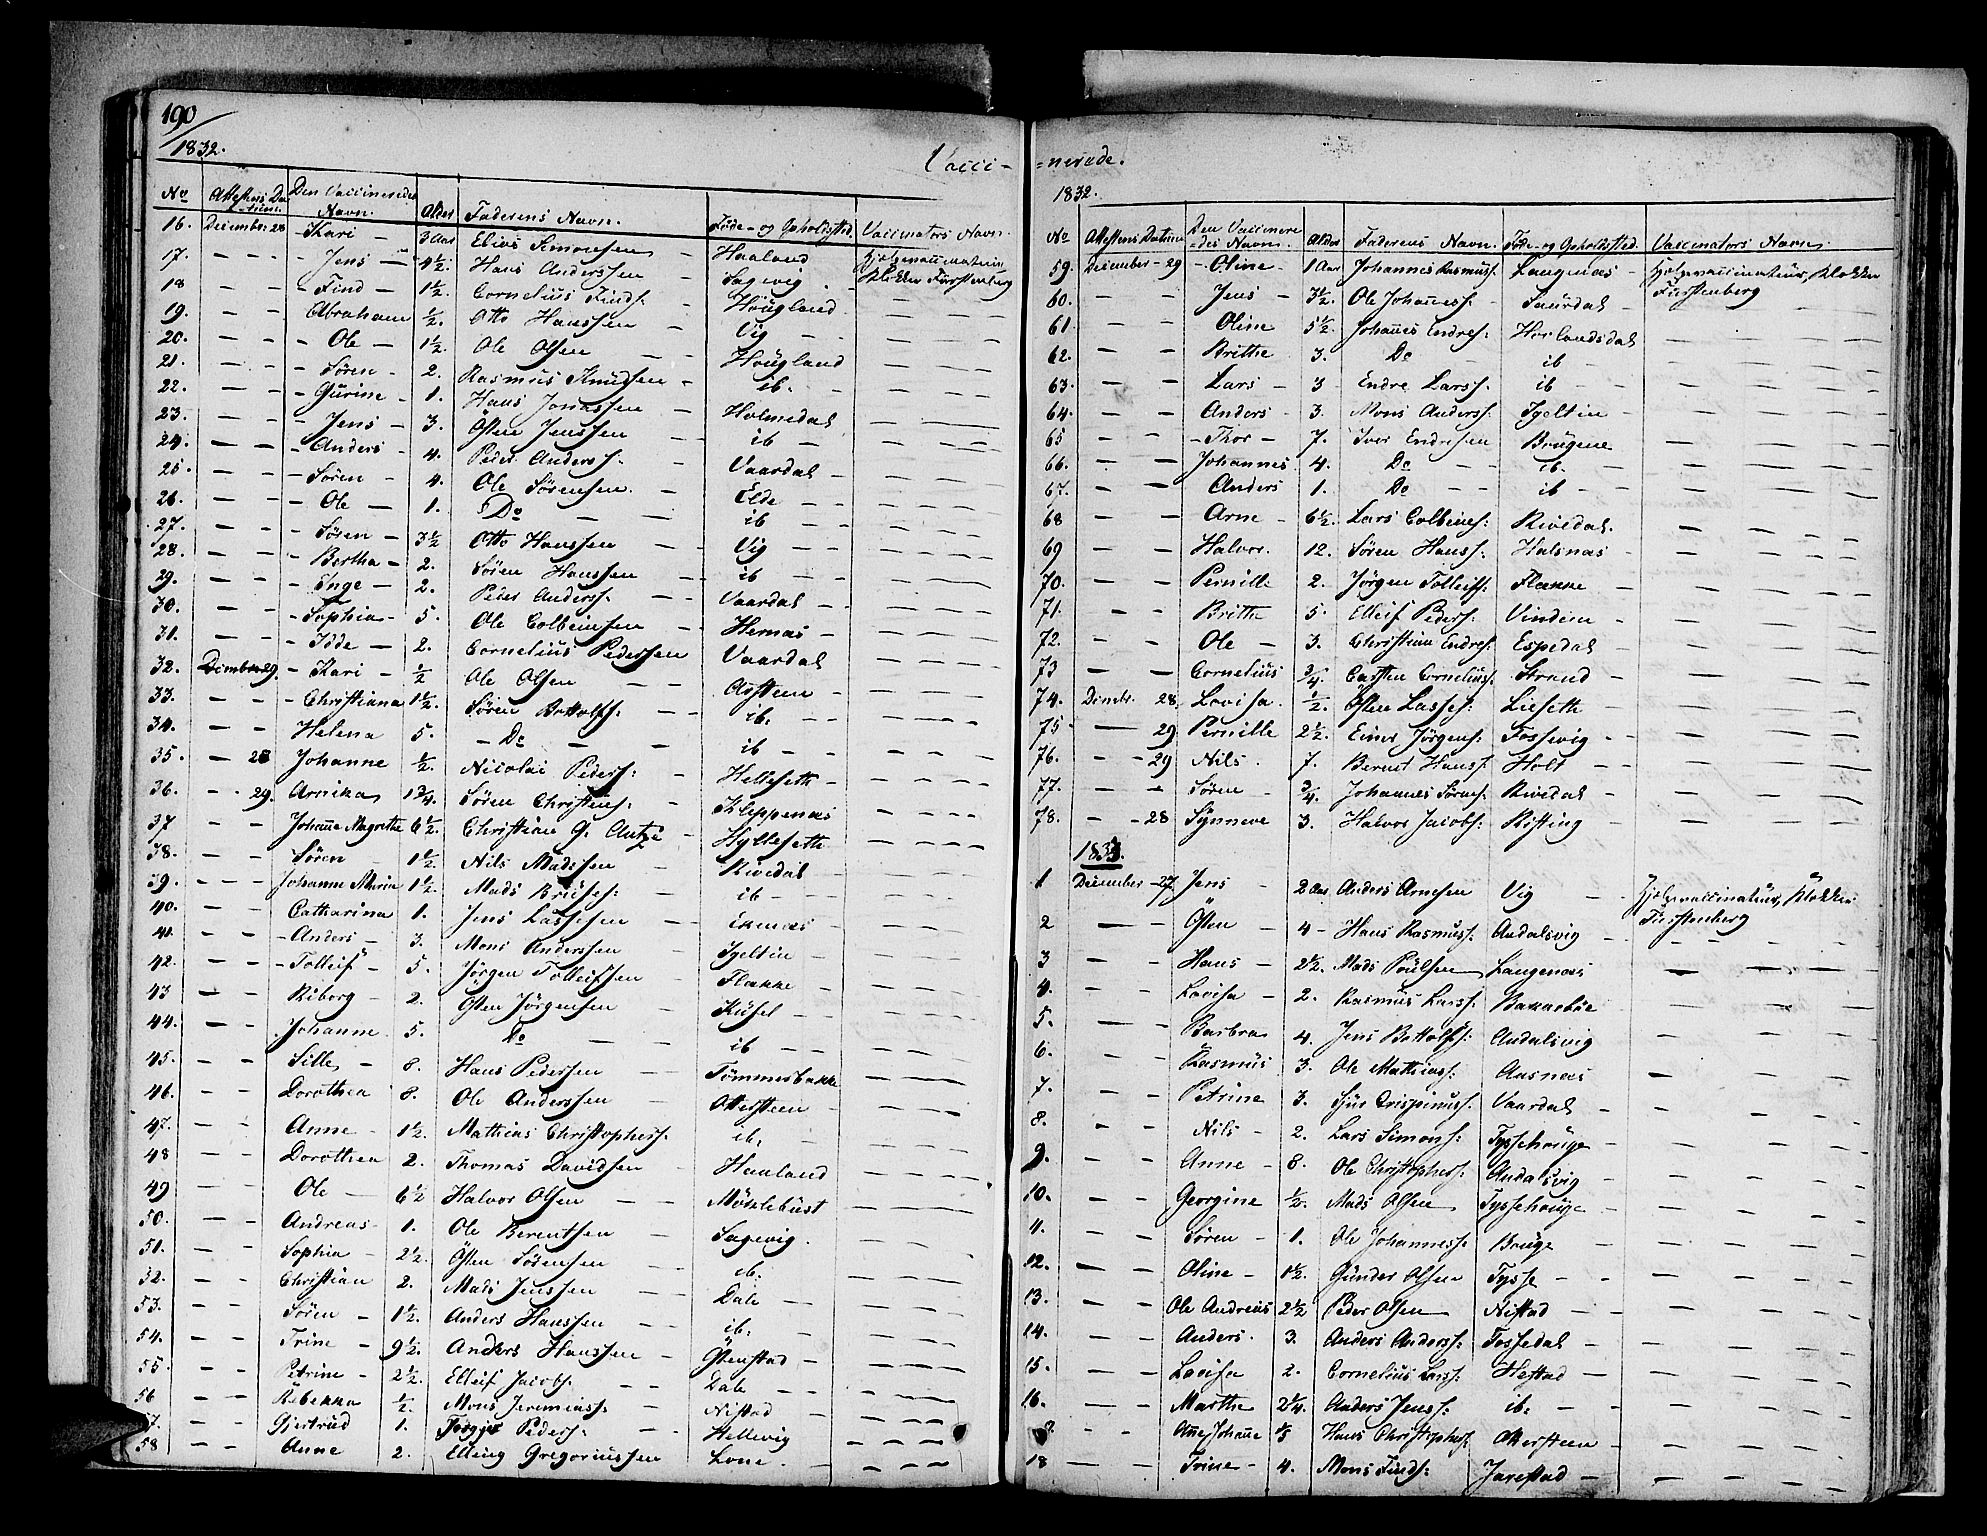 190
1832.
Vacci-
No Attestens Datum. Den Vaccineredes Navn. Alder Faderens Navn. Føde- og Opholdsted. Vaccinators Navn.
16. December 28 - Kari - 3 Aar Elias Simonsen - Haaland Hjelpevaccinateur
17. - - - Jens - 4½. Hans Anderssen - Sagevig - Klokker Fürstenberg
18 - - - Find - 1½. Cornelius Finds: - Höugland - - -
19. - - - Abraham ½. Otto Hanssen - Vig - - - -
20. - - - Ole - 1½ Ole Olsen - - Höugland - - -
21. - - - Søren - 2. Rasmus Knudsen - ib. - - - -
22. - - - Gurine - 1. Hans Jonassen - Holmedal - - -
23. - - - Jens - 3. Østen Jenssen - - ib - - - -
24. - - - Anders - 4. Peder Anderss: - Vaardal - - - -
25. - - - Søren - 4. Ole Sørensen. - Elde - - - -
26. - - - Ole - 1. Do - - ib - - - -
27. - - - Søren - 3½ Otto Hanssen - - Vig - - - -
28. - - - Bertha - 2. Søren Hanssen - - ib - - - -
29. - - - Enge - 2. Peder Anderss. - - Vaardal - - - -
30. - - - Sophia - 5. Ole Colbensen - - Hernas - - - -
31. - - - Idde - 2. Cornelius Pedersen Vaardal - - -
32. Dcmber 29. - Kari - ½ Ole Olsen - - Aasteen - - - -
33. - - - Christiana 1½. Søren Bottolfs: - ib. - - - -
34. - - Helena 5. - Do - - ib - - - -
35. - 28 Johanne ½. Nicolai Peders: - Helleseth - - - -
36. - - 29. Arnika 1¾. Søren Christens: - Kleppenæs - - -
37 - - Johanne Magrethe 6½. Christian G. Hylleseth - - -
38. - - Søren - 1½. Nils Madssen - Rivedal - - - -
39. - - - Johanne Maria 1½. Mads - ib - - - -
40. - - Catharina 1. Jens Lassesen - - Exenæs - - - -
41. - - - Anders - 3. Mons Anderssen - Tyeltin - - - -
42. - - - Tolleif - 5. Jørgen Tolleifssen - Flekke - - - -
43 - - Riborg - 2. Østen Jørgensen - - - - -
44. - - Johanne - 5. Do - - ib - - - -
45. - - Sille - 8. Hans Pedersen - - Tömmerbakke - - -
46. - - Dorothea 8. Ole Anderssen - - Ottersteen - - - -
47. - - Anne - 1½. Mathias Christophers: - ib. - - - -
48 - - Dorothea 2. Thomas Davidsen - Haaland - - -
49 - - Ole - 6½ Halvor Olsen - - Möklebüst - - -
50. - - Andreas - 1. Ole Berentsen - - Sagevig. - - -
51. - - Sophia - 2½. Østen Sørensen - ib. - - -
52. - - Christian 2. Mads Jenssen - - Dale - - - -
53. - - Søren - 1½. Anders Hanssen - - ib. - - -
54. - - Trine - 9½. Anders Hanssen - Østenstad - - - -
55. - - Petrine - 2½. Elleif Jacobs. - - Dale - - - -
56 - - Rebekka ½. Mons Jeremiass: - Nistad - - - -
57. - - Gjertrud 1. Peders: - Hellevig - - -
58 - - Anne 2. Elling Gregoriussen Lone. - - - -
=nerede.
1832.
No Attestens Datum Den Vaccineredes Navn. Alder Faderens Navn. Føde- og Opholdssted. Vaccinators Navn.
59. December - 29 - Oline - 1 Aar Johannes Rasmuss: Langenæs - Hjelpevaccinateur, Klokker
60. - - Jens - 3½. Ole Johaness: - Saurdal - Fürstenberg
61. - - Oline 5½. Johanes Endres: Horlandsdal - - -
62. - - Brithe 3. Do ib - - - -
63. - - Lars - 3 Endre Larss: ib - - - -
64. - - Anders - 3. Mons Anderss: Tyeltin - - - -
65 - - - Thor - 7. Iver Endresen Brügene - - -
66. - - Johannes 4. Do - - ib. - - - -
67. - - Anders 1. Do - ib - - - -
68 - - Arne - 6½. Lars Colbens: Rivedal. - - -
69 - - Halvor. 12. Søren Hanss: Halsnas - - - -
70. - - Pernille 2. Jørgen Tolleifs: Flekke - - - -
71. - - Brithe 5. Elleif Peders: Vinden - - - -
72. - - Ole - 3. Christian Endres: Espedal - - -
73 - - Cornelius ¾ Carsten Cornelius: Strand - - - -
74. Dcmbr. 28 Lovisa. ½. Østen Lasses: Lieseth - - - -
75 - 29 Pernille 2½. Einer Jørgens: Fossevig - - - -
76. - - 29 Nils. 7. Berent Hanss: Holt - - - -
77. - - Søren - ¾. Johannes Sørens: Rivedal - - - -
78. - - 28 Synneve 3. Halvor Jacobs: Risting - - -
1833.
1 December - 27 Jens - 2 Aar Anders Arnesen Vig - Hjelpevaccinateur, Klokker
2 - - Østen - 4 - Hans Rasmuss: Aadalsvig - Fürstenberg
3 - - Hans - 2½. Mads Poülsen Langenæs - - -
4. - - Lovisa - 2. Rasmus Larss: Bakkebøe - - -
5. - - Barbra 4. Jens Bottolfs: Aadalsvig - - -
6. - - Rasmus 3. Ole Mathiass: Aasnæs - - -
7. - - Petrine 3. Sjur Crispinuss: Vaardal - - - -
8. - - Nils - 2. Lars Simons: Tyssehouge - - -
9. - - Anne - 8. Ole Christophers: Aadalsvig - - -
10. - - Georgine ½. Mads Olsen Tyssehouge - - -
11. - - Søren - 1. Ole Johanness. Brüge - - -
12. - - Oline - 1½. Gunder Olsen Tysse - - - -
13. - - Ole Andreas 2½ Peder Olsen Nistad - - - -
14. - - Anders. 3. Anders Anderss: Fossedal - - - -
15. - - Lovisa 2. Cornelius Larss: Hestad - - - -
16. - - Marthe 2¼. Anders Jenss: ib. - - - -
- - Hans Christophers: Akersteen - - - -
18 - - Trine - 4. Mons Finds: Jarestad - - - -